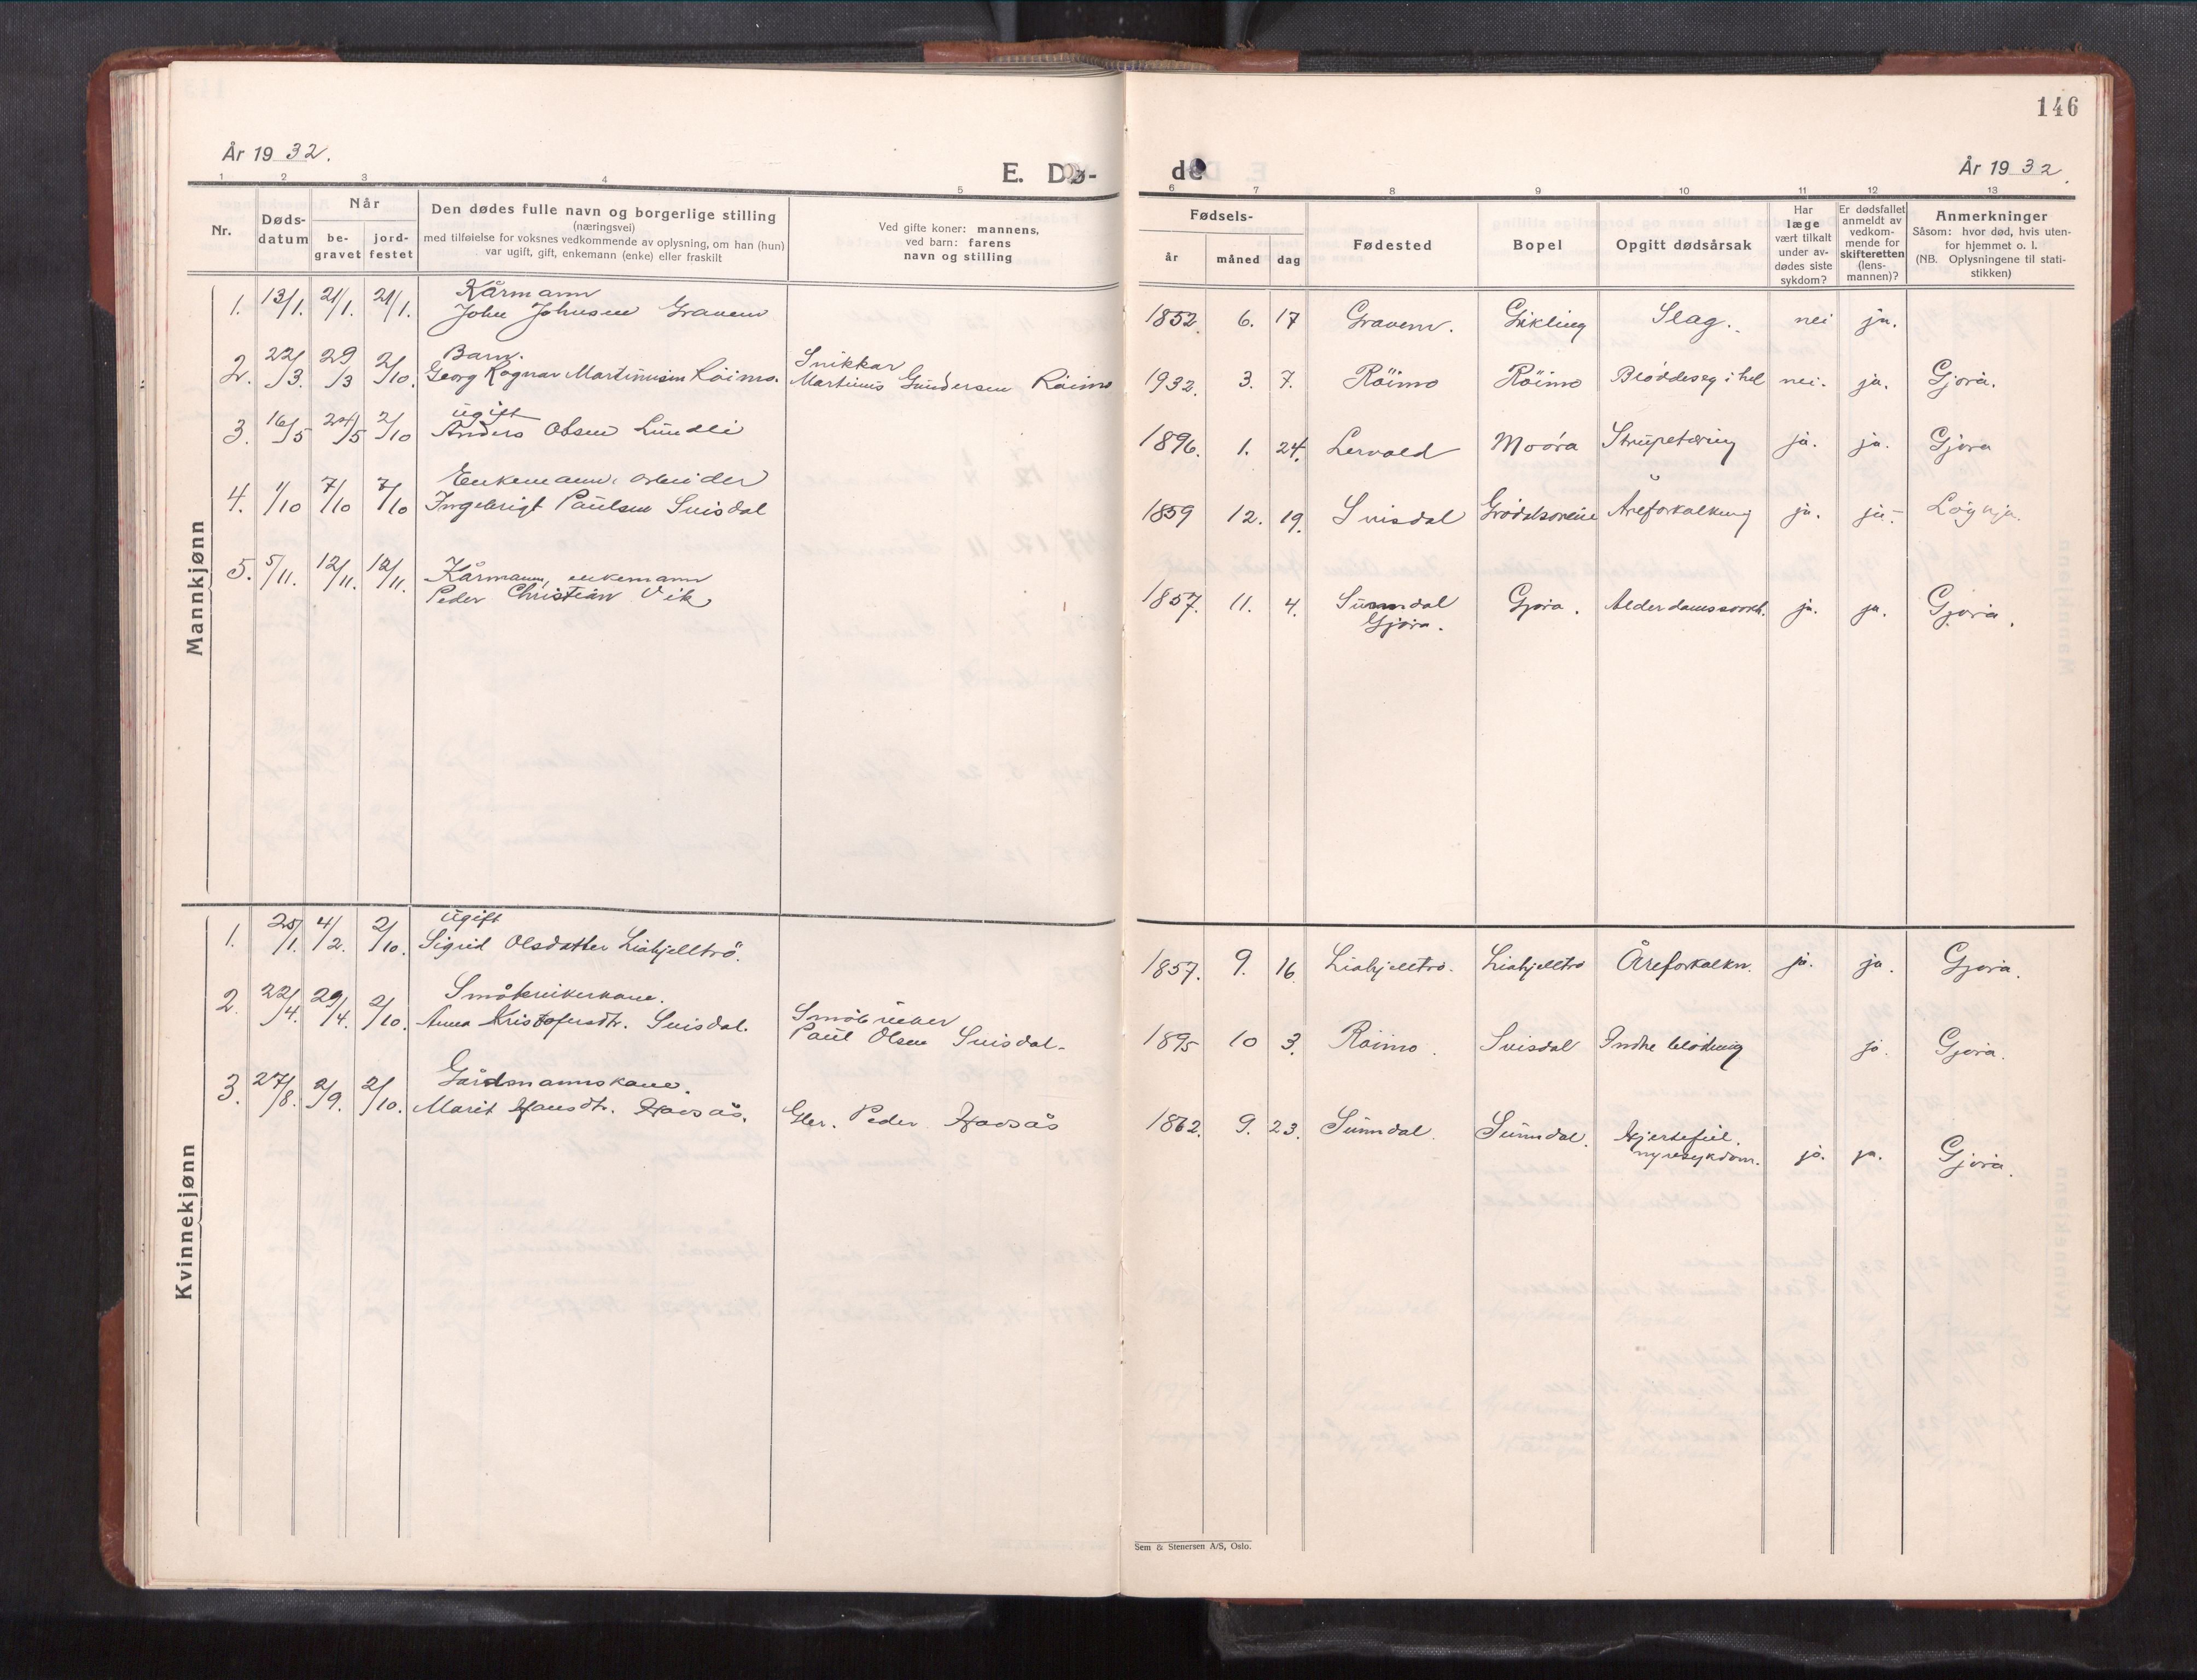 146
År 1932.
E. Dø-
de
År 1932.
1 2 3 4 5 6 7 8 9 10 11 12 13
Nr.
Døds-
datum
Når
be-
gravet
jord-
festet
Den dødes fulle navn og borgerlige stilling
(næringsvei)
med tilføielse for voksnes vedkommende av oplysning, om han (hun)
var ugift, gift, enkemann (enke) eller fraskilt
Ved gifte koner: mannens,
ved barn: farens
navn og stilling
Fødsels-
år måned dag
Fødested
Bopel
Opgitt dødsårsak
Har
læge
vært tilkalt
under av-
dødes siste
sykdom?
Er dødsfallet
anmeldt av
vedkom-
mende for
skifteretten
(lens-
mannen)?
Anmerkninger
Såsom: hvor død, hvis uten-
for hjemmet o. l.
(NB. Oplysningene til stati-
stikken)
Mannkjønn
Kårmann
1. 13/1. 21/1. 21/1. John Johnsen Gravem 1852. 6. 17 Gravem. Gikling Slag. nei ja.
Barn. Snikkar
2. 22/3. 29/3 2/10. Georg Ragnar Martinusen Röimo. Martinus Gundersen Röimo 1932. 3. 7. Röimo Röimo nei. ja. Gjöra.
ugift
3. 16/5 24/5 2/10 Anders Olsen Lundli 1896. 1. 24. Lervold Moöra Strupetæring ja. ja. Gjöra
Enkemann, arbeider
4. 1/10 7/10 7/10 Ingebrigt Paulsen Svisdal 1859 12. 19. Svisdal Åreforkalkning ja. ja.
Kårmann, enkemann
5. 5/11. 12/11. 12/11. Peder Christian Vik 1857. 11. 4. Sunndal Gjöra. ja. ja. Gjöra.
Gjöra.
Kvinnekjønn
ugift
1. 25/1. 4/2. 2/10. Sigrid Olsdatter Liahjelltrö. 1857. 9. 16 Liahjelltrö. Liahjelltrö Åreforkalkn. ja. ja. Gjöra.
Småbrukerkone. Småbruker
2 22/4. 29/4. 2/10. Anna Kristofersdtr. Svisdal. Paul Olsen Svisdal. 1895 10 3. Röimo. Svisdal Indre blödning ja. Gjöra.
Gårdmannskone.
3. 27/8. 2/9. 2/10. Marit Hansdtr. Havsås. Gbr. Peder Havsås 1862. 9. 23. Sunndal. Sunndal. Hjertefeil.
nyresykdom. ja. ja. Gjöra.
Sem & Stenersen A/S, Oslo.